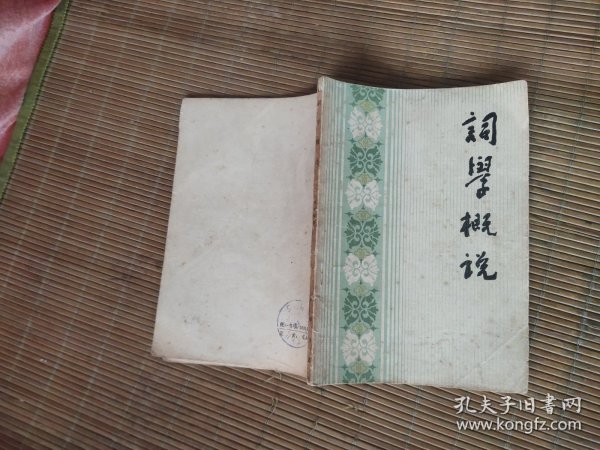 詞學概说
孔夫子旧书网
www.kongfz.com